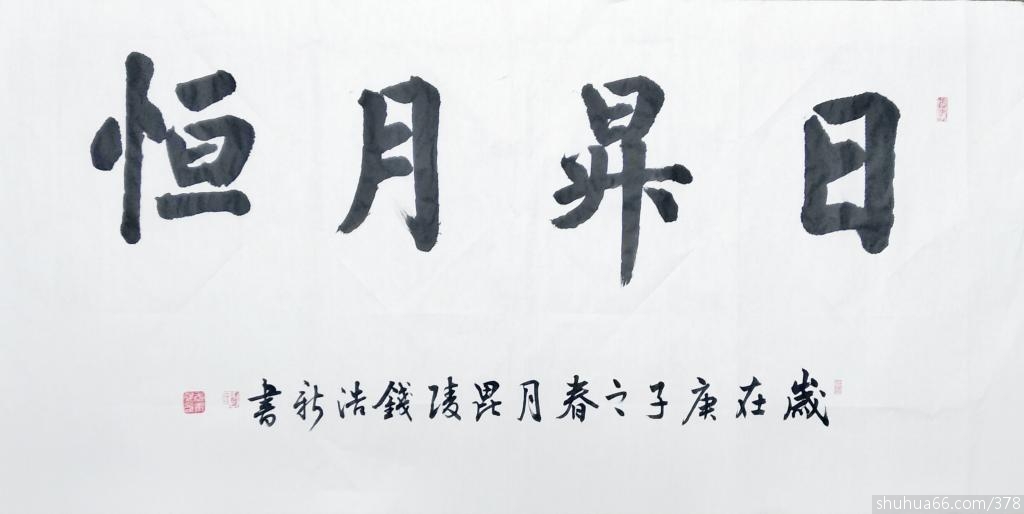 日昇月恒
歲在庚子之春月毘陵錢浩新書
shuhua66.com/378